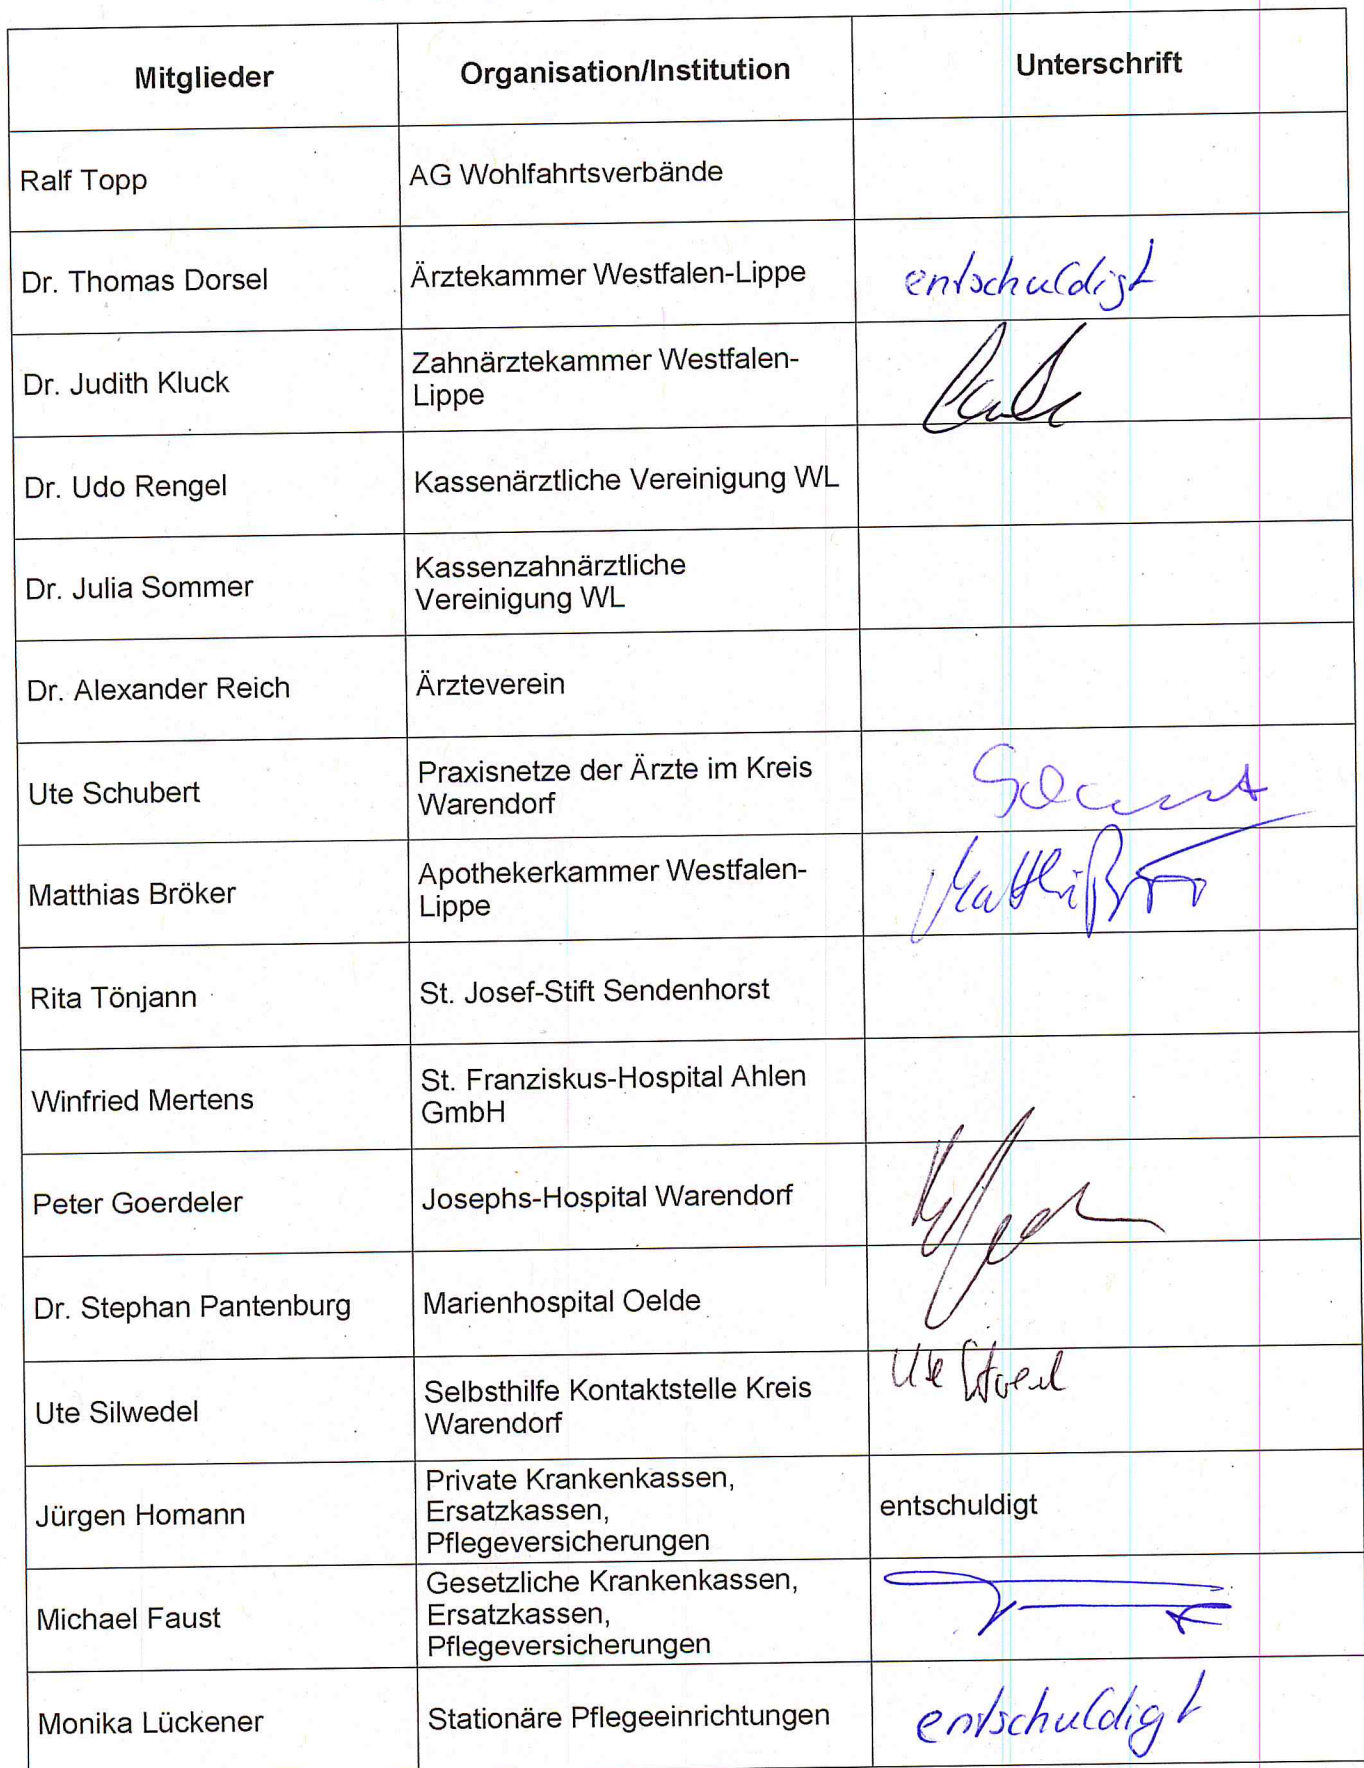 Mitglieder Organisation/Institution Unterschrift
Ralf Topp AG Wohlfahrtsverbände
Dr. Thomas Dorsel Ärztekammer Westfalen-Lippe entschuldigt
Dr. Judith Kluck Zahnärztekammer Westfalen-
Lippe
Dr. Udo Rengel Kassenärztliche Vereinigung WL
Dr. Julia Sommer Kassenzahnärztliche
Vereinigung WL
Dr. Alexander Reich Ärzteverein
Ute Schubert Praxisnetze der Ärzte im Kreis
Warendorf
Matthias Bröker Apothekerkammer Westfalen-
Lippe
Rita Tönjann St. Josef-Stift Sendenhorst
Winfried Mertens St. Franziskus-Hospital Ahlen
GmbH
Peter Goerdeler Josephs-Hospital Warendorf
Dr. Stephan Pantenburg Marienhospital Oelde
Ute Silwedel Selbsthilfe Kontaktstelle Kreis
Warendorf
Ute
Jürgen Homann Private Krankenkassen,
Ersatzkassen,
Pflegeversicherungen
entschuldigt
Michael Faust Gesetzliche Krankenkassen,
Ersatzkassen,
Pflegeversicherungen
Monika Lückener Stationäre Pflegeeinrichtungen entschuldigt